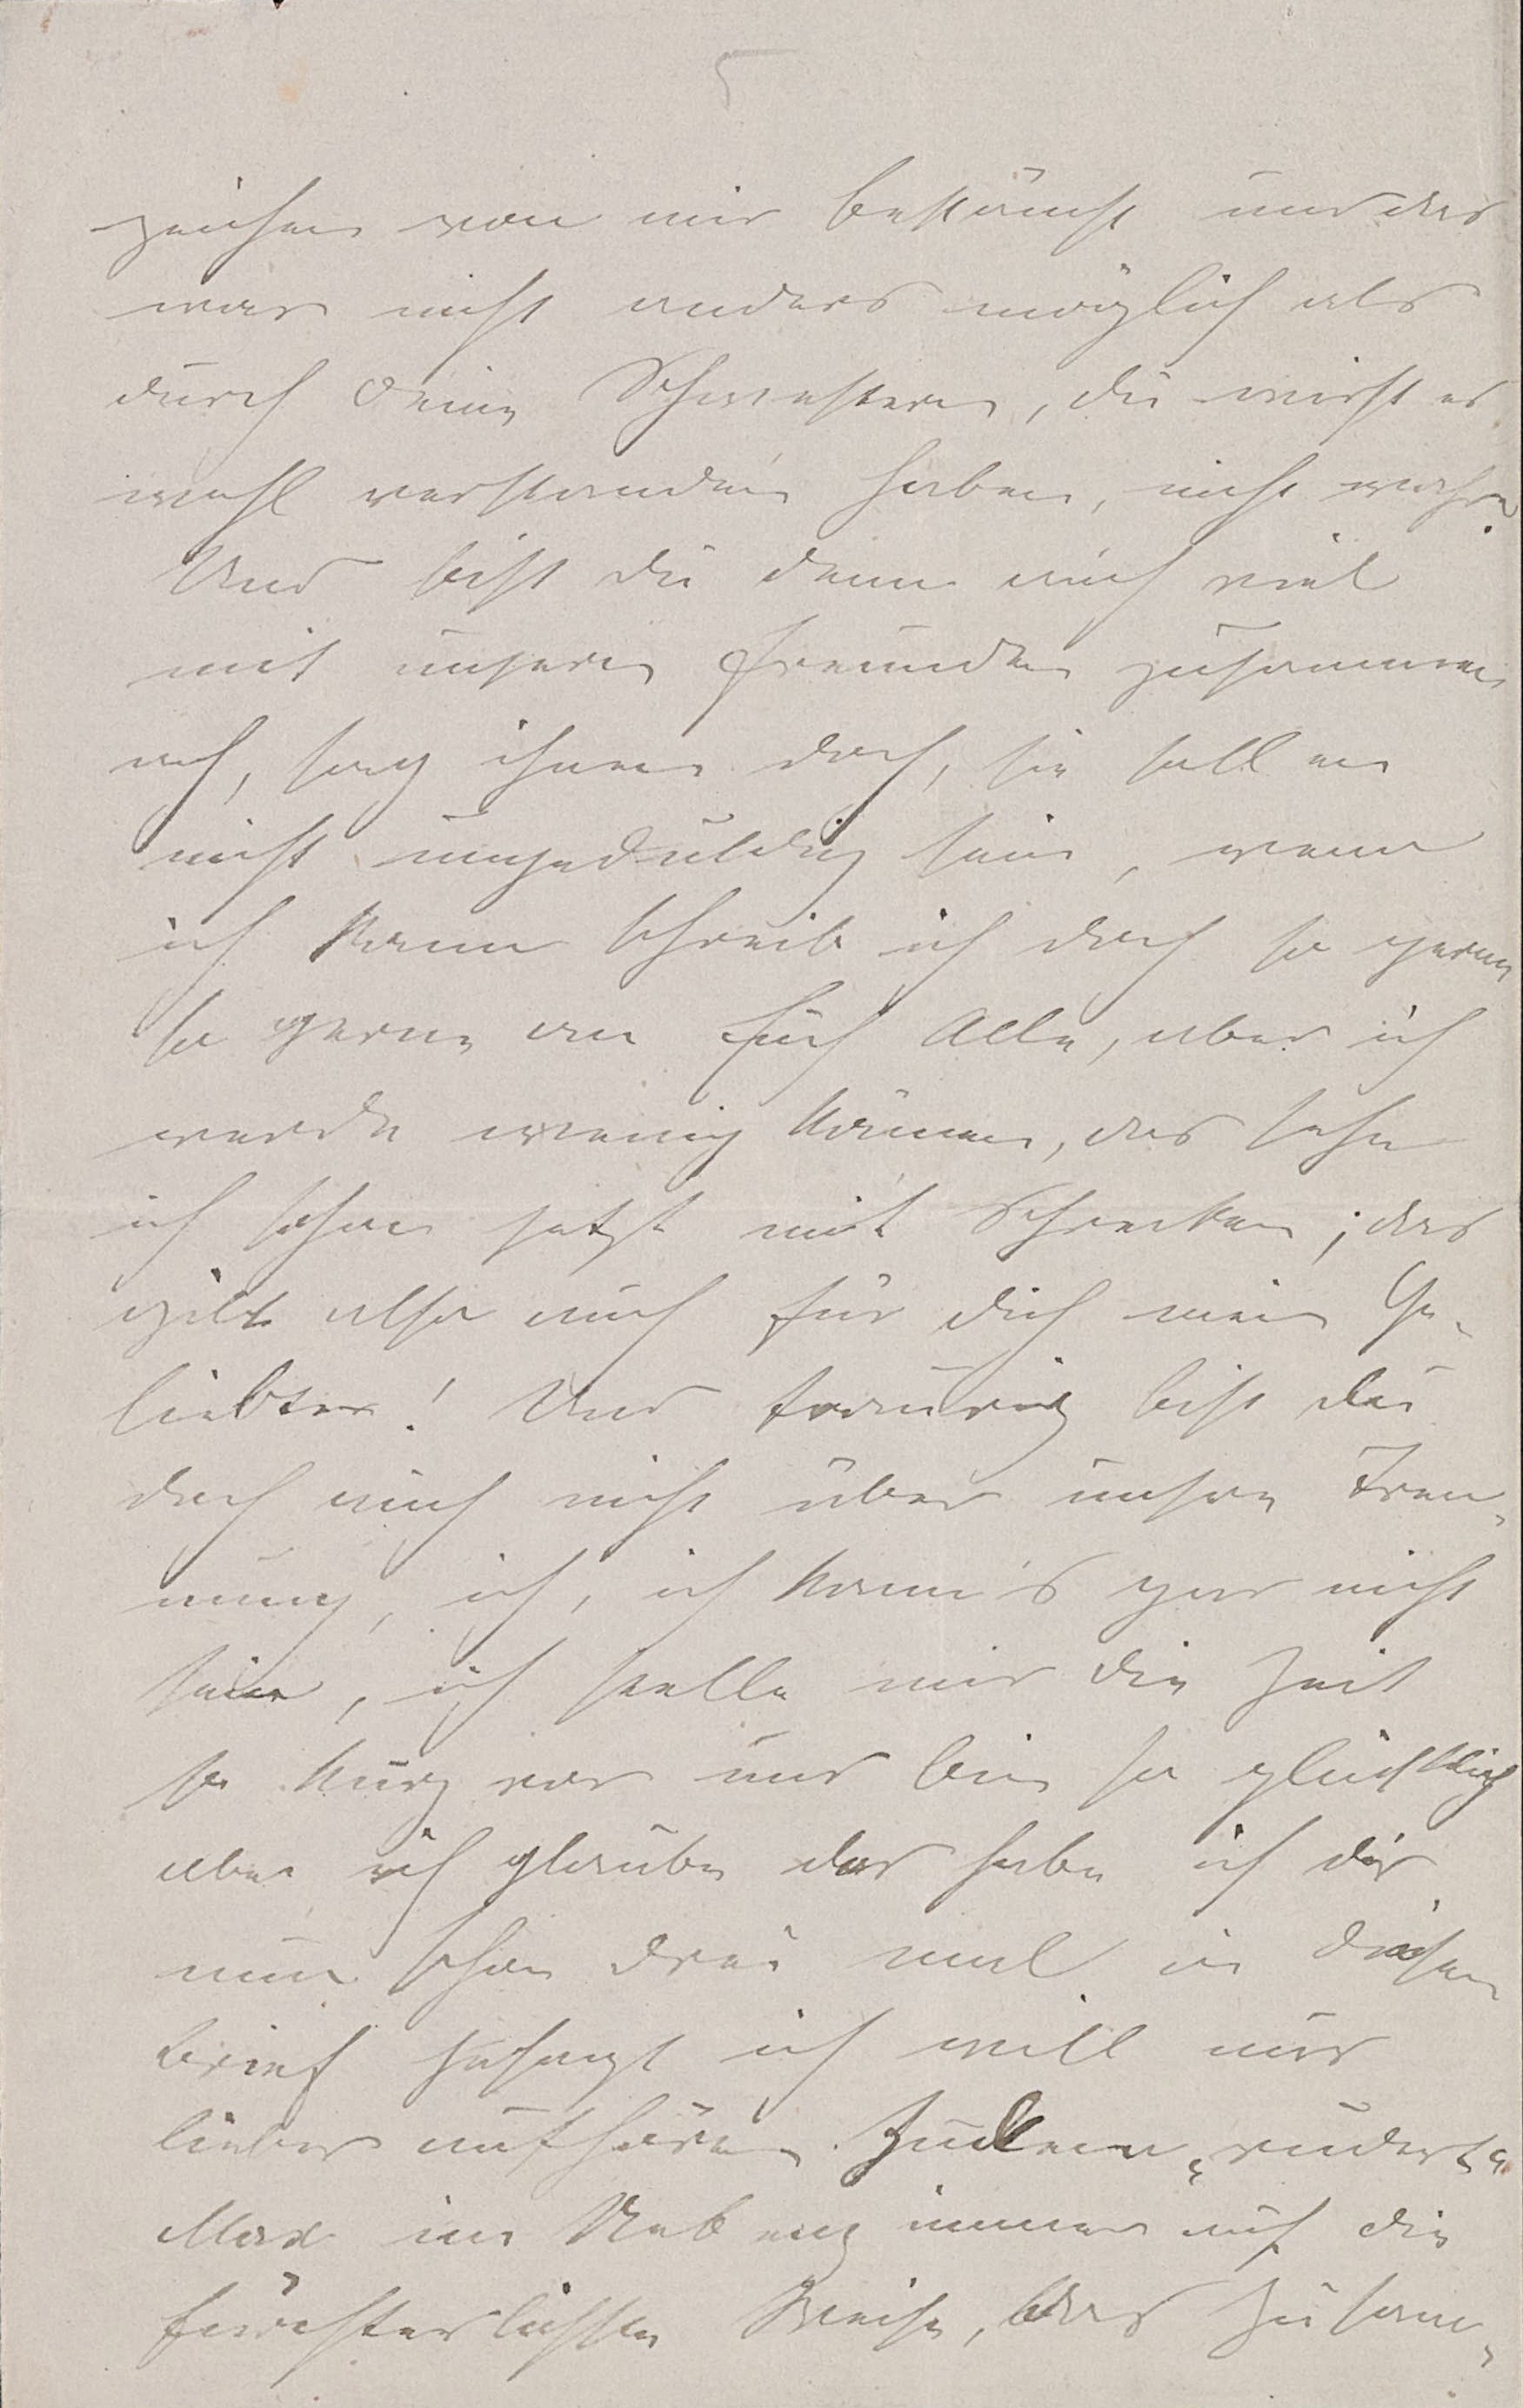 5
zeichen von mir bekämst und das
war nicht anders möglich als
durch Deine Schwestern, du wirst es
wohl verstanden haben, nicht wahr?
Und bist du denn auch viel
mit unsern Freunden zusammen
ach, sag ihnen doch, sie sollen
nicht ungeduldig sein, wenn
ich kann schreib ich doch so gerne
so gerne an Euch Alle, aber ich
werde wenig können, das sehe
ich schon jetzt mit Schrecken; das
gilt also auch für dich mein Ge-
liebter! Und traurig bist du
doch auch nicht über unsre Tren-
nung, ich, ich kann's gar nicht
sein, ich stelle mir die Zeit
so kurz vor und bin so glücklich
aber ich glaube das habe ich dir
nun schon drei mal in diesem
Brief gesagt ich will nur
lieber aufhören. Zudem „rudert“
Max im Nebenz immer auf die
fürchterlichste Weise, das Zusam-